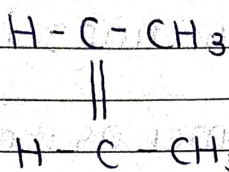 H - C - CH3
||
H - C - CH